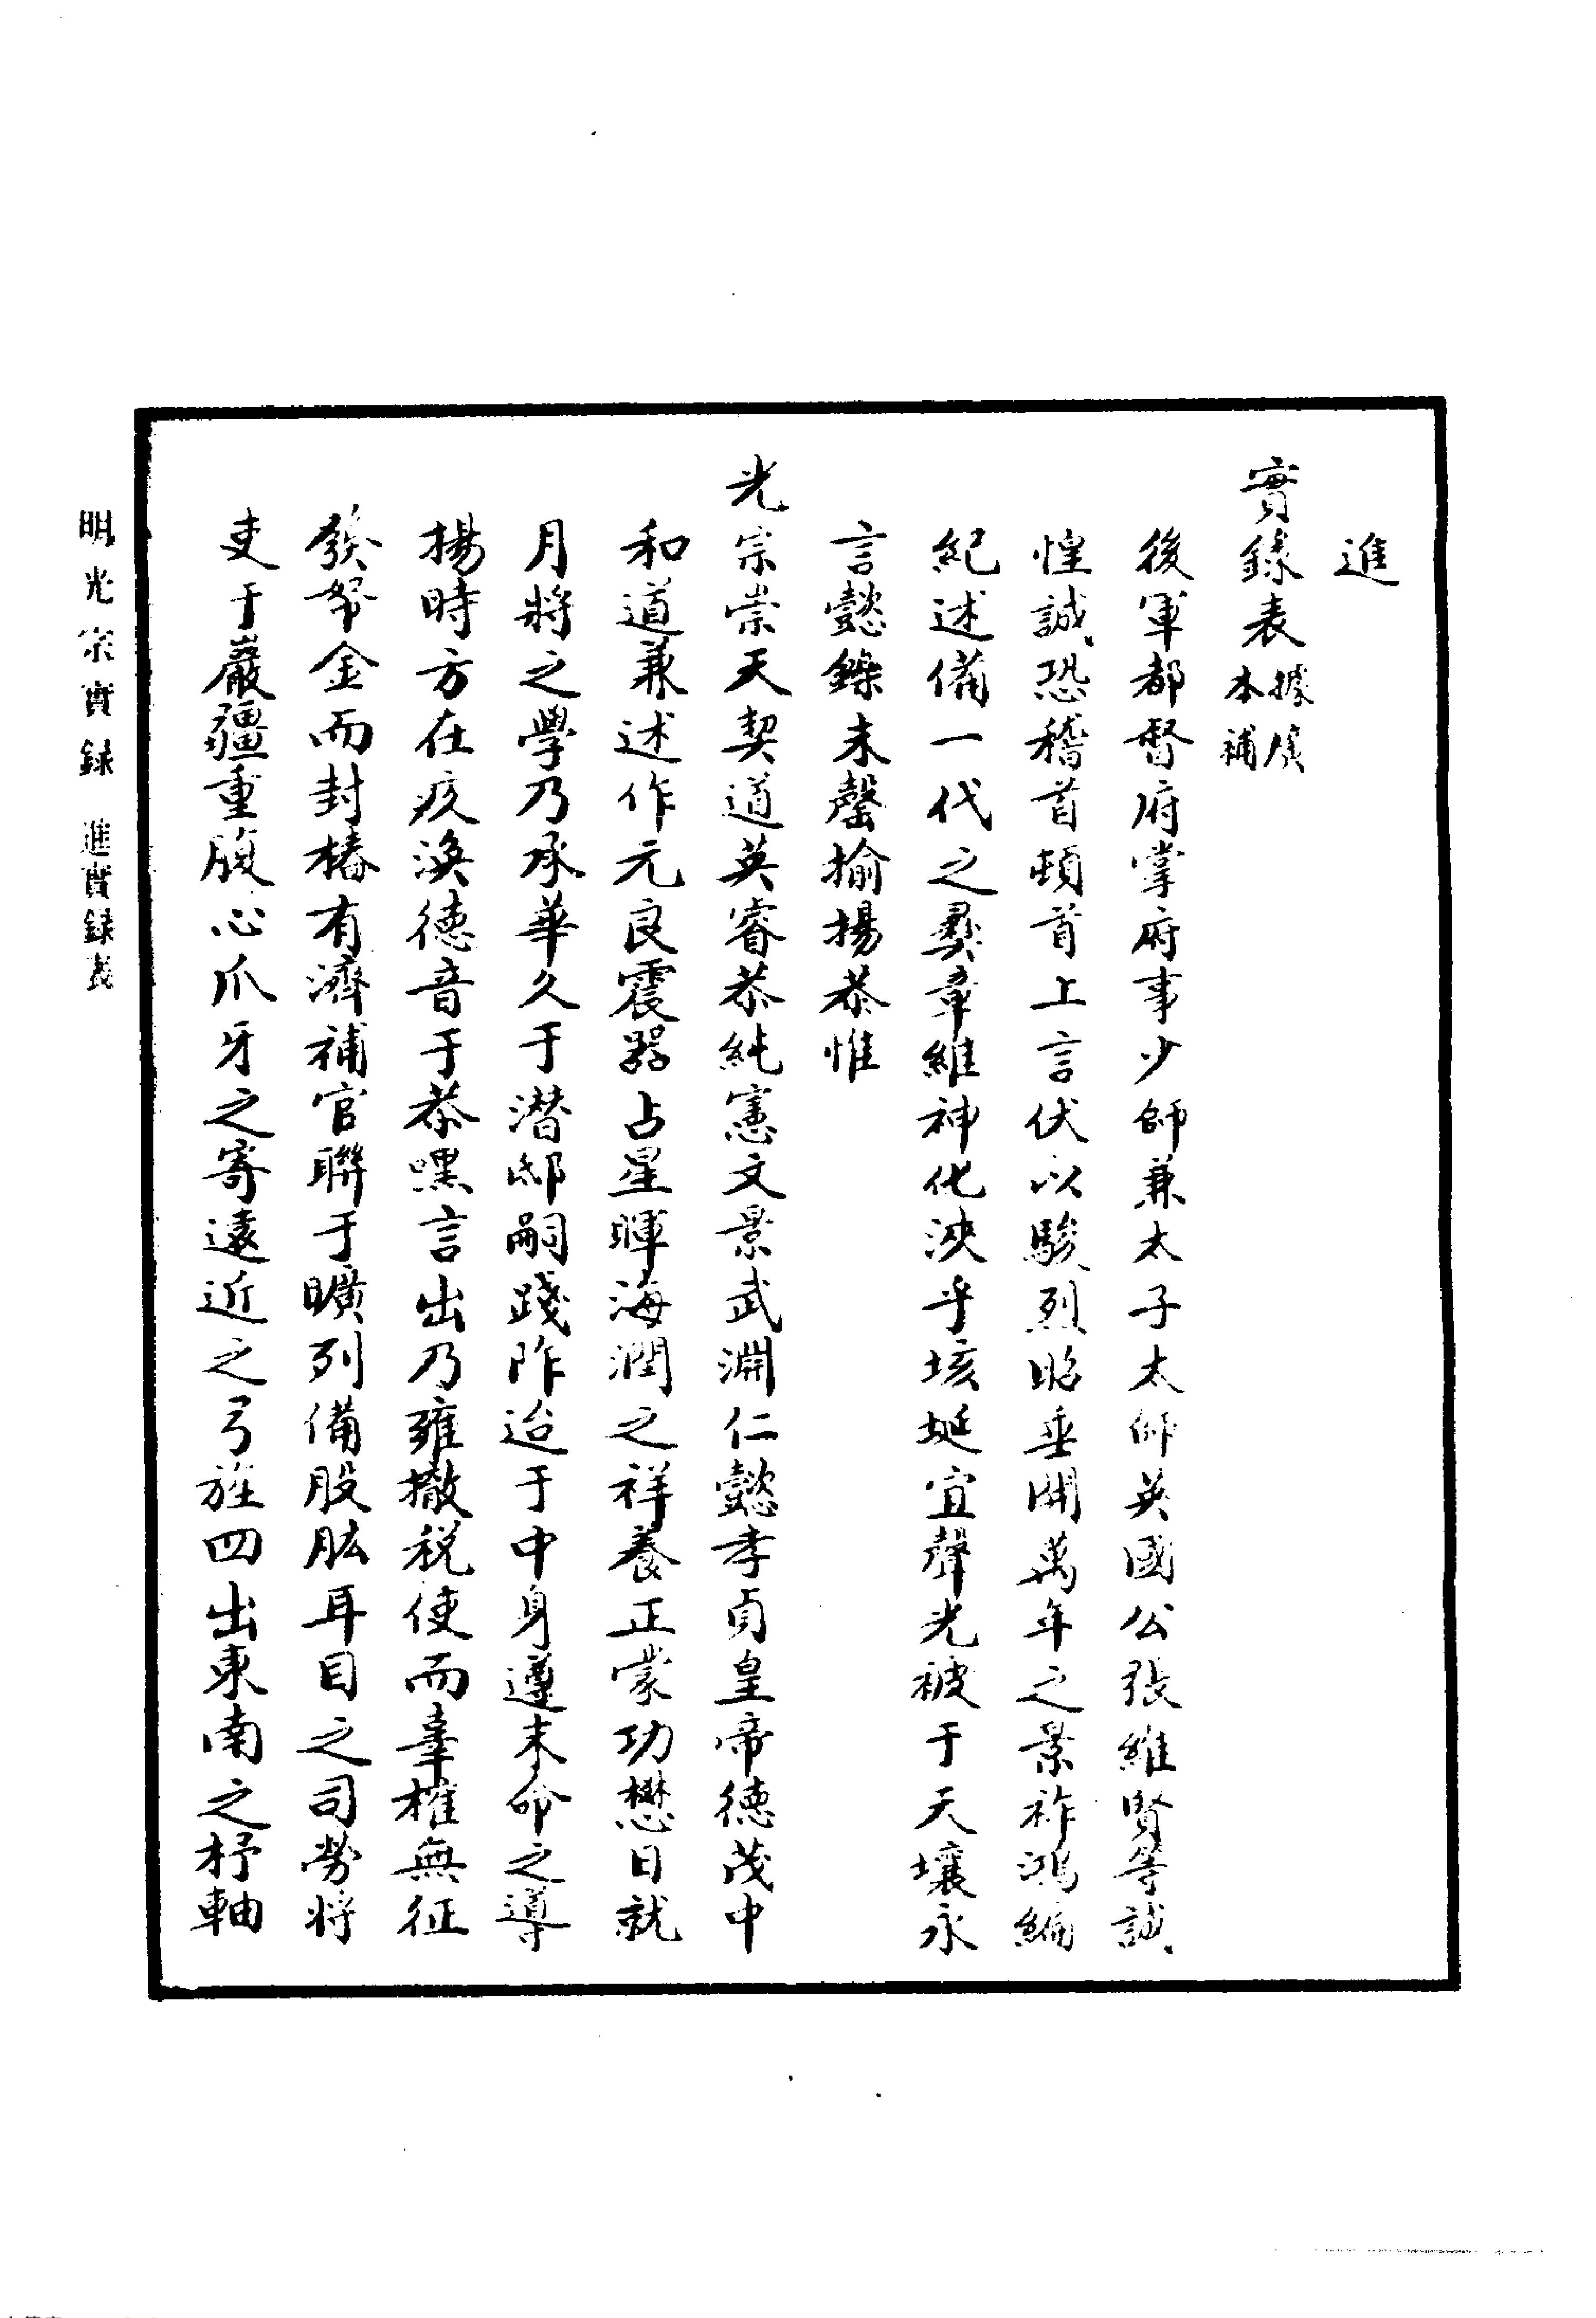 進
實錄表據廣本補
後軍都督府掌府事少師兼太子太師英國公張維賢等誠
惶誠恐稽首頓首上言伏以駿烈昭垂開萬年之景祚鴻編
紀述備一代之彝章維神化浹乎垓埏宜聲光被于天壤永
言懿鑠未罄揄揚恭惟
光宗崇天契道英睿恭純憲文景武淵仁懿孝貞皇帝德茂中
和道兼述作元良震器占星暉海潤之祥養正蒙功懋日就
月將之學乃承華久于潛邸嗣踐阼迨于中身遵末命之導
揚時方在疚渙德音于恭嘿言出乃雍撤稅使而辜榷無征
發帑金而封樁有濟補官聯于曠列備股肱耳目之司勞將
吏于嚴疆重腹心爪牙之寄遠近之弓旌四出東南之杼軸
明光宗實錄 進實錄表